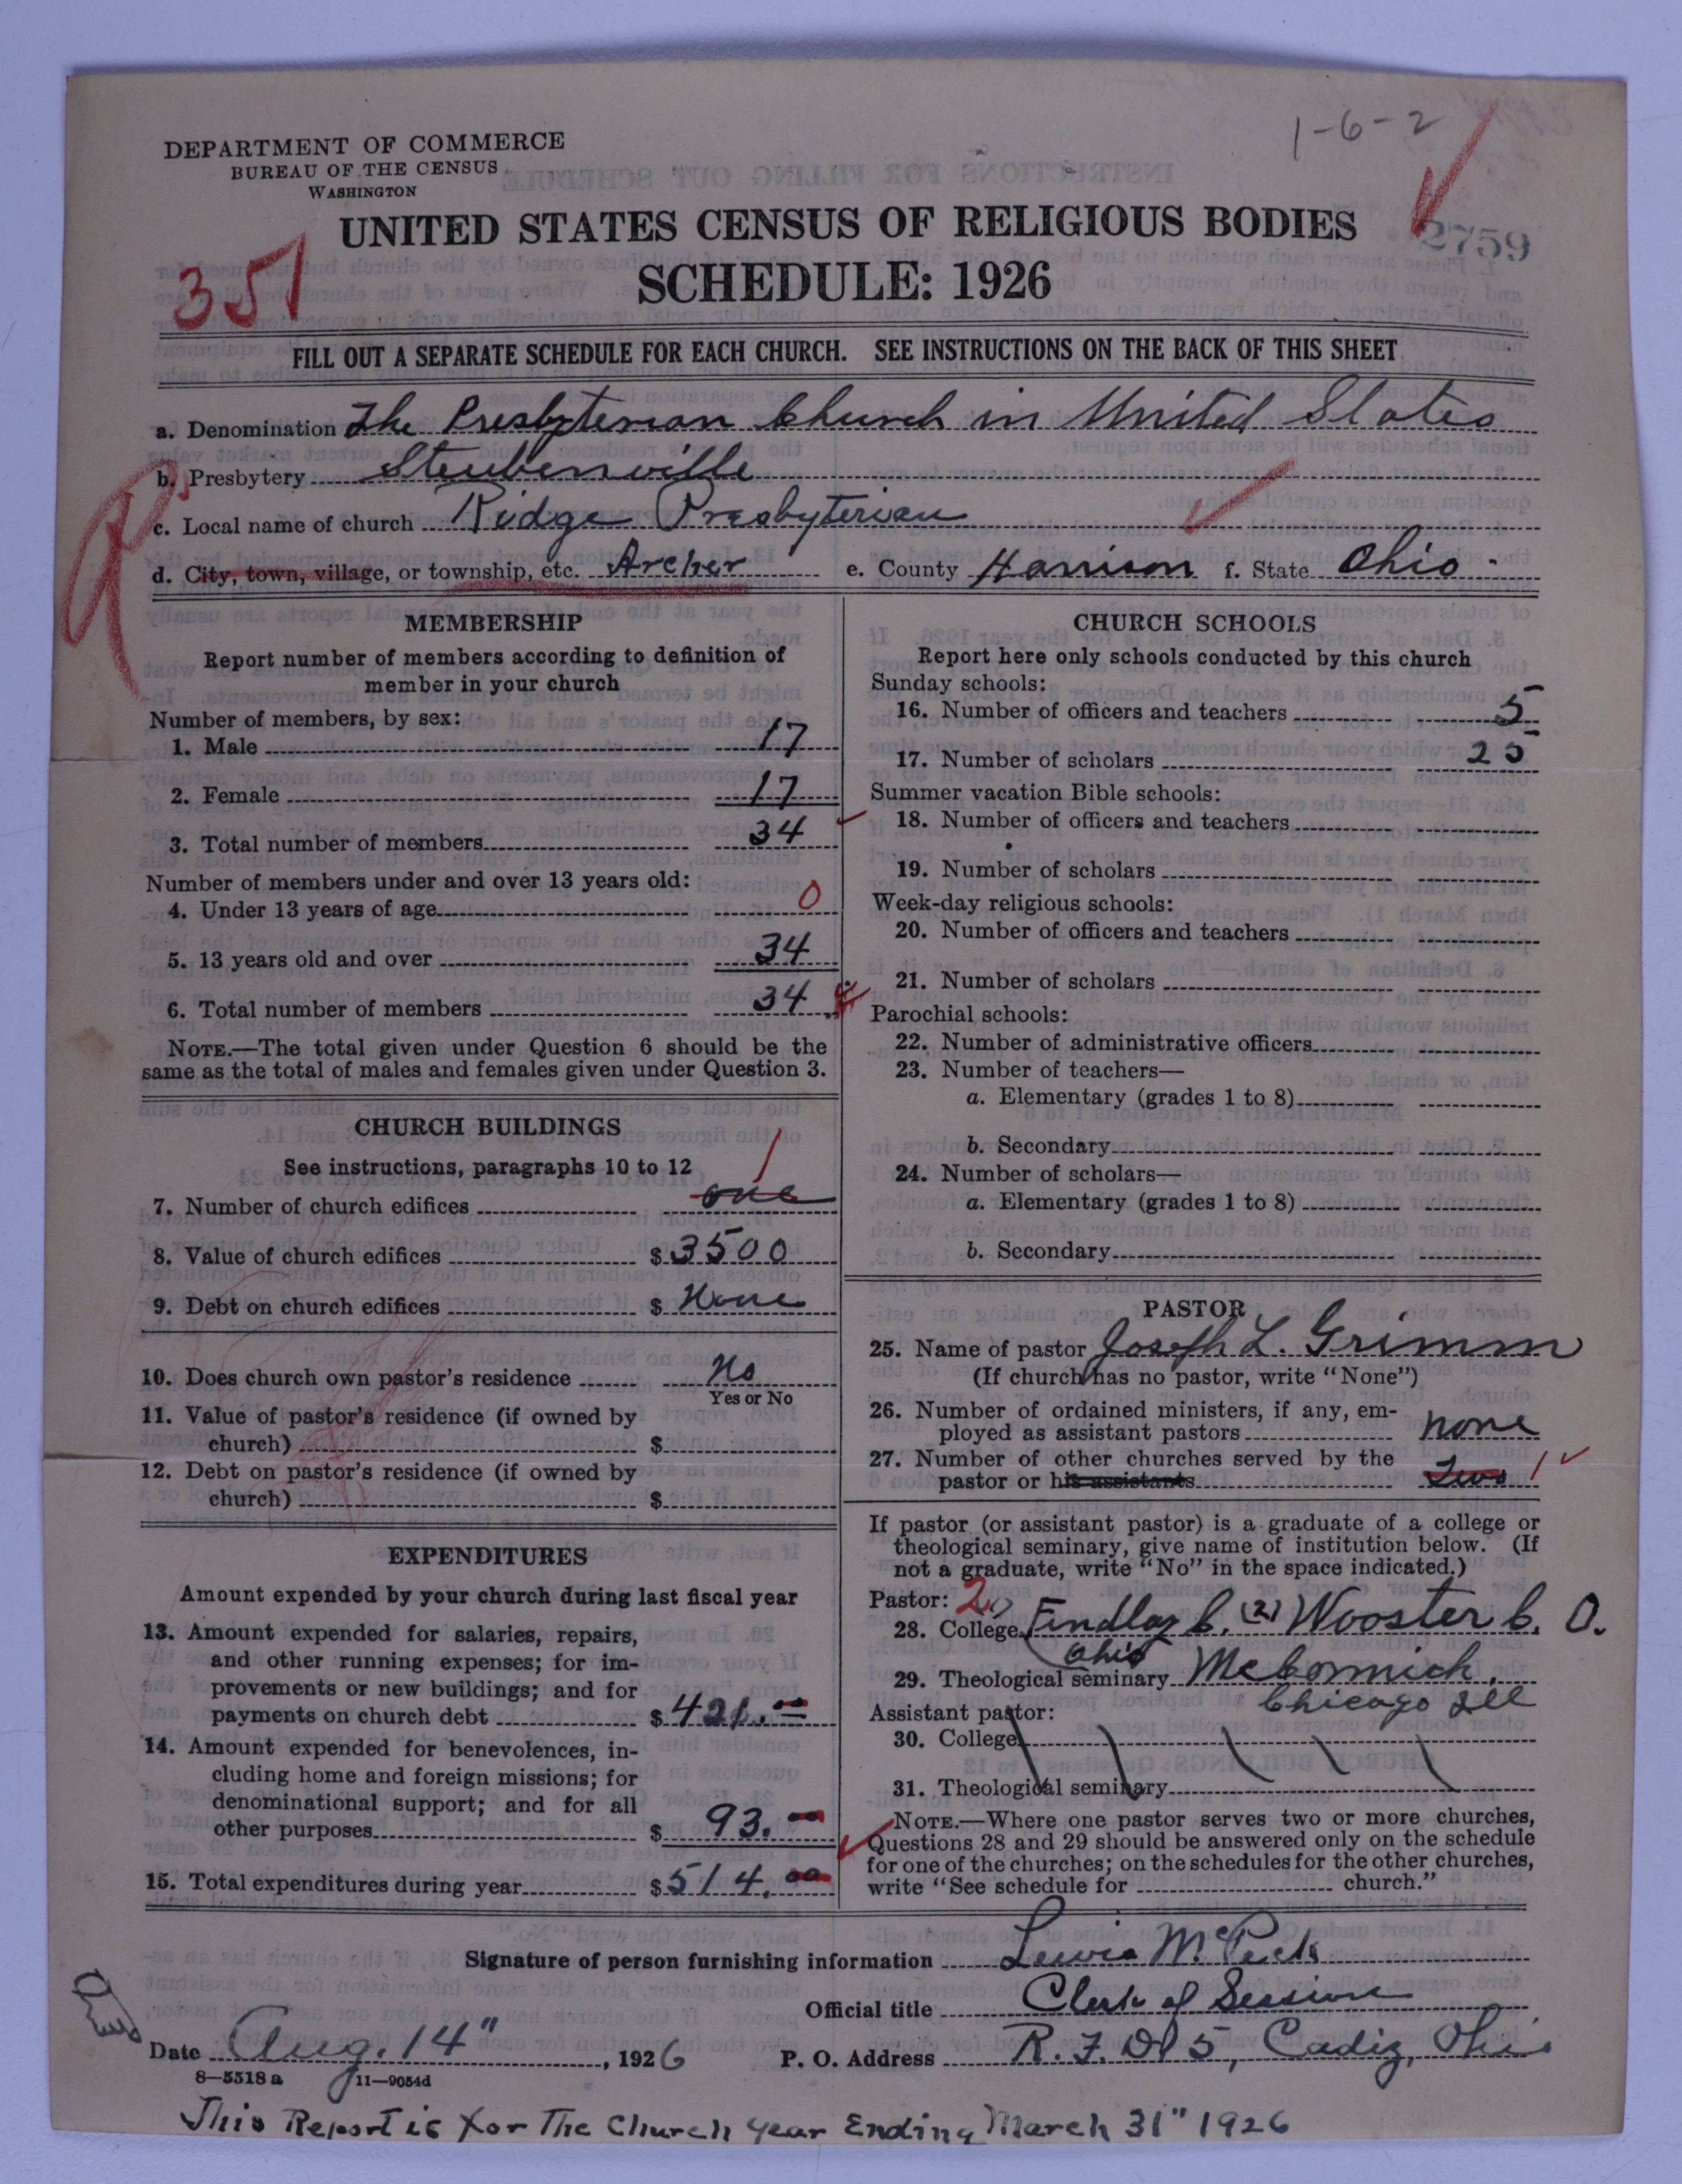 1-6-2
DEPARTMENT OF COMMERCE
BUREAU OF THE CENSUS
WASHINGTON
UNITED STATES CENSUS OF RELIGIOUS BODIES
2759
351
SCHEDULE: 1926
FILL OUT A SEPARATE SCHEDULE FOR EACH CHURCH. SEE INSTRUCTIONS ON THE BACK OF THIS SHEET
a. Denomination The Presbyterian Church in United States
b. Presbytery Steubenville
c. Local name of church Ridge Presbyterian
d. City, town, village, or township, etc. Archer e. County Harrison f. State Ohio
MEMBERSHIP
Report number of members according to definition of
member in your church
Number of members, by sex:
1. Male 17
2. Female 17
3. Total number of members 34
Number of members under and over 13 years old:
4. Under 13 years of age 0
5. 13 years old and over 34
6. Total number of members 34
NOTE.—The total given under Question 6 should be the
same as the total of males and females given under Question 3.
CHURCH BUILDINGS
See instructions, paragraphs 10 to 12
7. Number of church edifices one 1
8. Value of church edifices $ 3500
9. Debt on church edifices $ None
10. Does church own pastor's residence No
Yes or No
11. Value of pastor's residence (if owned by
church) $
12. Debt on pastor's residence (if owned by
church) $
EXPENDITURES
Amount expended by your church during last fiscal year
13. Amount expended for salaries, repairs,
and other running expenses; for im-
provements or new buildings; and for
payments on church debt $ 421.00
14. Amount expended for benevolences, in-
cluding home and foreign missions; for
denominational support; and for all
other purposes $ 93.00
15. Total expenditures during year $ 514.00
CHURCH SCHOOLS
Report here only schools conducted by this church
Sunday schools:
16. Number of officers and teachers 5
17. Number of scholars 25
Summer vacation Bible schools:
18. Number of officers and teachers
19. Number of scholars
Week-day religious schools:
20. Number of officers and teachers
21. Number of scholars
Parochial schools:
22. Number of administrative officers
23. Number of teachers—
a. Elementary (grades 1 to 8)
b. Secondary
24. Number of scholars—
a. Elementary (grades 1 to 8)
b. Secondary
PASTOR
25. Name of pastor Joseph L. Grimm
(If church has no pastor, write "None")
26. Number of ordained ministers, if any, em-
ployed as assistant pastors none
27. Number of other churches served by the
pastor or his assistants Two 1
If pastor (or assistant pastor) is a graduate of a college or
theological seminary, give name of institution below. (If
not a graduate, write "No" in the space indicated.)
Pastor: 2
28. College Findlay C. (2) Wooster C. O.
Ohio
29. Theological seminary McCormick,
Chicago Ill
Assistant pastor:
30. College
31. Theological seminary
NOTE.—Where one pastor serves two or more churches,
Questions 28 and 29 should be answered only on the schedule
for one of the churches; on the schedules for the other churches,
write "See schedule for church."
Signature of person furnishing information Lewis McPeck
Official title Clerk of Session
Date Aug. 14", 1926 P. O. Address R. F. D 5, Cadiz, Ohio
8—5518 a 11—9054d
This Report is for The Church Year Ending March 31" 1926